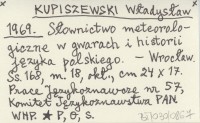 KUPISZEWSKI Władysław
1969. Słownictwo meteorolo-
giczne w gwarach i historii
języka polskiego. – Wrocław.
Ss. 168, m. 18, okł., cm 24 x 17.
Prace Językoznawcze nr 57,
Komitet Językoznawstwa PAN
WHP. ★ P, G, S.